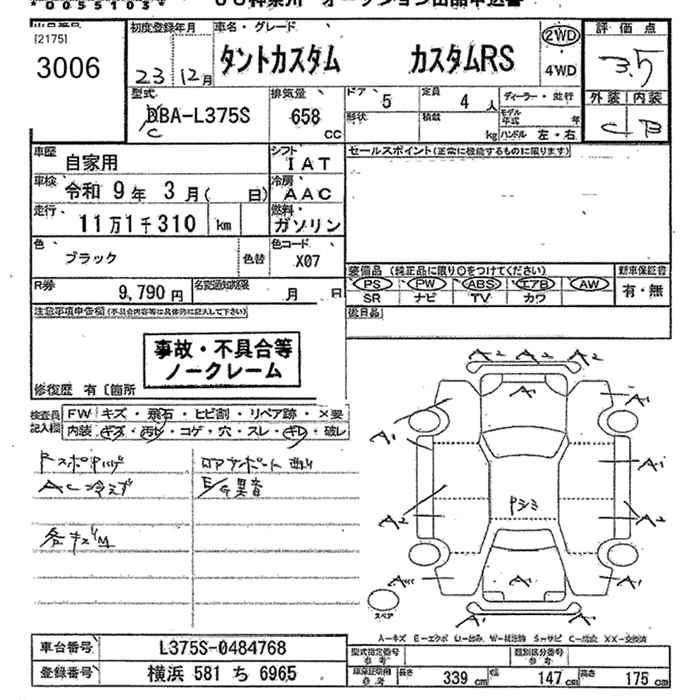 [2175]
3006
初度登録年月
23 12月
車名・グレード
タントカスタム カスタムRS
2WD
・
4WD
評価点
3.5
外装 内装
C B
型式
DBA-L375S
C
排気量
658
CC
ドア
5
定員
4人
形状
積載
kg
ディーラー・並行
モデル年式 年
ハンドル 左・右
車歴
自家用
シフト
IAT
セールスポイント(正常に機能するものに限ります)
車検
令和 9年 3月( 日)
冷房
AAC
走行
11万1千310 km
燃料
ガソリン
色
ブラック
色替
色コード
X07
R券
9,790円
名変通知期限
月 日
装備品 (純正品に限り○をつけてください)
PS PW ABS エアB AW
SR ナビ TV カワ
新車保証書
有・無
後日品
注意事項申告欄(不具合内容等は具体的に記入して下さい)
事故・不具合等
ノークレーム
修復歴 有〔箇所
検査員記入欄
FW キズ・飛石・ヒビ割・リペア跡・×要
内装 キズ・汚レ・コゲ・穴・スレ・キレ・破レ
AC冷えず
E/G異音
A2 A2 A2
A1 A1
A1 A1
A2 A2
A1 A1 A1
A2 A2
スペア
A-キズ E-エクボ U-凹み W-補修跡 S-サビ C-腐食 XX-交換済
車台番号
L375S-0484768
登録番号
横浜 581 ち 6965
型式指定番号
参考
類別区分番号
参考
車庫証明用
参考
長さ 339 cm
幅 147 cm
高さ 175 cm